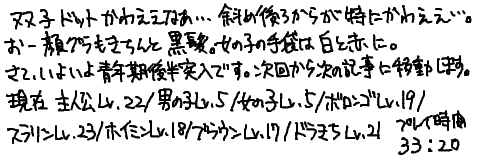 双子ドットかわええなあ…斜め後ろからが特にかわええ…。
おー顔グラもきちんと黒髪。女の子の手袋は白と赤に。
さて、いよいよ青年期後半突入です。次回から次の記事に移動します。
現在 主人公Lv.22/男の子Lv.5/女の子Lv.5/ボロンゴLv.19/
スラリンLv.23/ホイミンLv.18/ブラウンLv.17/ドラきちLv.21 プレイ時間
33:20